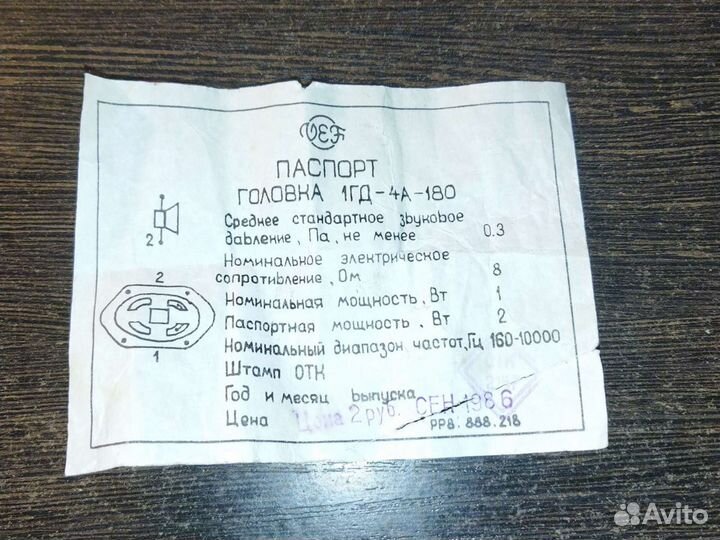 VEF
ПАСПОРТ
ГОЛОВКА 1ГД-4А-180
Среднее стандартное звуковое
давление, Па, не менее 0.3
2
Номинальное электрическое
сопротивление, Ом 8
2
Номинальная мощность, Вт 1
Паспортная мощность, Вт 2
1
Номинальный диапазон частот, Гц 160-10000
Штамп ОТК
Год и месяц выпуска СЕН 1986
Цена Цена 2 руб.
РР8.888.218
Avito